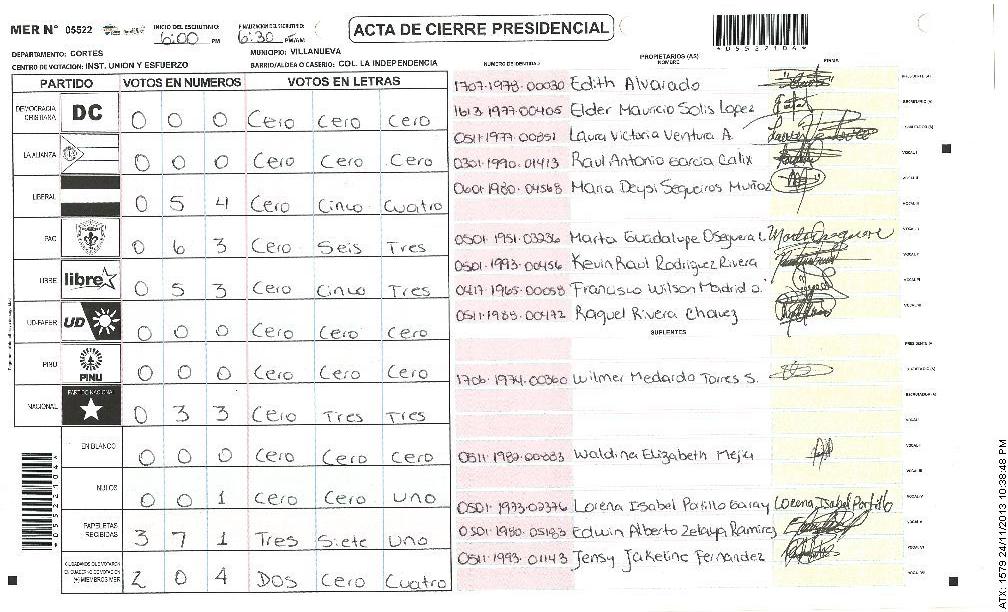 MER N° 05522
INICIO DEL ESCRUTINIO: 6:00 PM
FINALIZACION DEL ESCRUTINIO: 6:30 PM/AM
ACTA DE CIERRE PRESIDENCIAL
*05522104*
DEPARTAMENTO: CORTES
MUNICIPIO: VILLANUEVA
CENTRO DE VOTACION: INST. UNION Y ESFUERZO
BARRIO/ALDEA O CASERIO: COL. LA INDEPENDENCIA
PARTIDO VOTOS EN NUMEROS VOTOS EN LETRAS
DEMOCRACIA CRISTIANA DC 0 0 0 Cero Cero Cero
LA ALIANZA 0 0 0 Cero Cero Cero
LIBERAL 0 5 4 Cero Cinco Cuatro
PAC 0 6 3 Cero Seis Tres
LIBRE libre 0 5 3 Cero Cinco Tres
UD-FAPER UD 0 0 0 Cero Cero Cero
PINU PINU 0 0 0 Cero Cero Cero
NACIONAL PARTIDO NACIONAL 0 3 3 Cero Tres Tres
EN BLANCO 0 0 0 Cero Cero Cero
NULOS 0 0 1 Cero Cero Uno
PAPELETAS RECIBIDAS 3 7 1 Tres Siete Uno
CIUDADANOS QUE VOTARON EN CUADERNO DE VOTACION (+) MIEMBROS MER 2 0 4 Dos Cero Cuatro
NUMERO DE IDENTIDAD PROPIETARIOS (AS) NOMBRE FIRMA
1707-1978-00030 Edith Alvarado
1613-1977-00405 Elder Mauricio Solis Lopez
0511-1977-00851 Laura Victoria Ventura A.
0301-1990-01413 Raul Antonio Garcia Calix
0601-1980-04568 Maria Deysi Sequeiros Muñoz
0501-1951-03236 Marta Guadalupe Oseguera L.
0501-1993-00456 Kevin Raul Rodriguez Rivera
0417-1965-00058 Francisco Wilson Madrid
0511-1985-00472 Raquel Rivera Chavez
SUPLENTES
1706-1974-00360 Wilmer Medardo Torres S.
0511-1982-00883 Waldina Elizabeth Mejia
0501-1973-02376 Lorena Isabel Portillo Garay Lorena Isabel Portillo
0501-1980-05183 Edwin Alberto Zelaya Ramirez
0511-1993-01143 Jensy Jakeline Fernandez
*05522104*
ATX: 1579 24/11/2013 10:38:48 PM